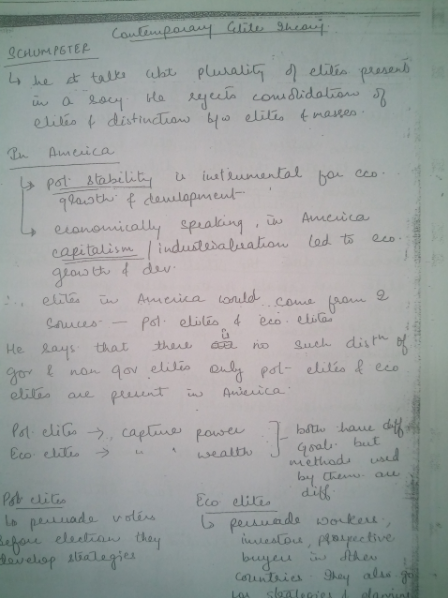 Contemporary Elite Theory
SCHUMPETER
↳ he st talks abt plurality of elites present
in a socy He rejects consolidation of
elites & distinction b/w elites & masses.
In America
↳ pol. stability is instrumental for eco.
growth & development
↳ economically speaking, in America
capitalism / industrialisation led to eco.
growth & dev.
∴ elites in America would come from 2
sources — pol. elites & eco. elites
He says that there is no such distn of
gov & non gov elites only pol- elites & eco
elites are present in America.
Pol. elites → capture power
Eco elites → " " wealth
both have diff
goals but
methods used
by them are
diff.
Pol elites
↳ persuade voters
before election they
develop strategies
Eco elites
↳ persuade workers,
investors, prospective
buyers in other
countries. They also go
for strategies & planning